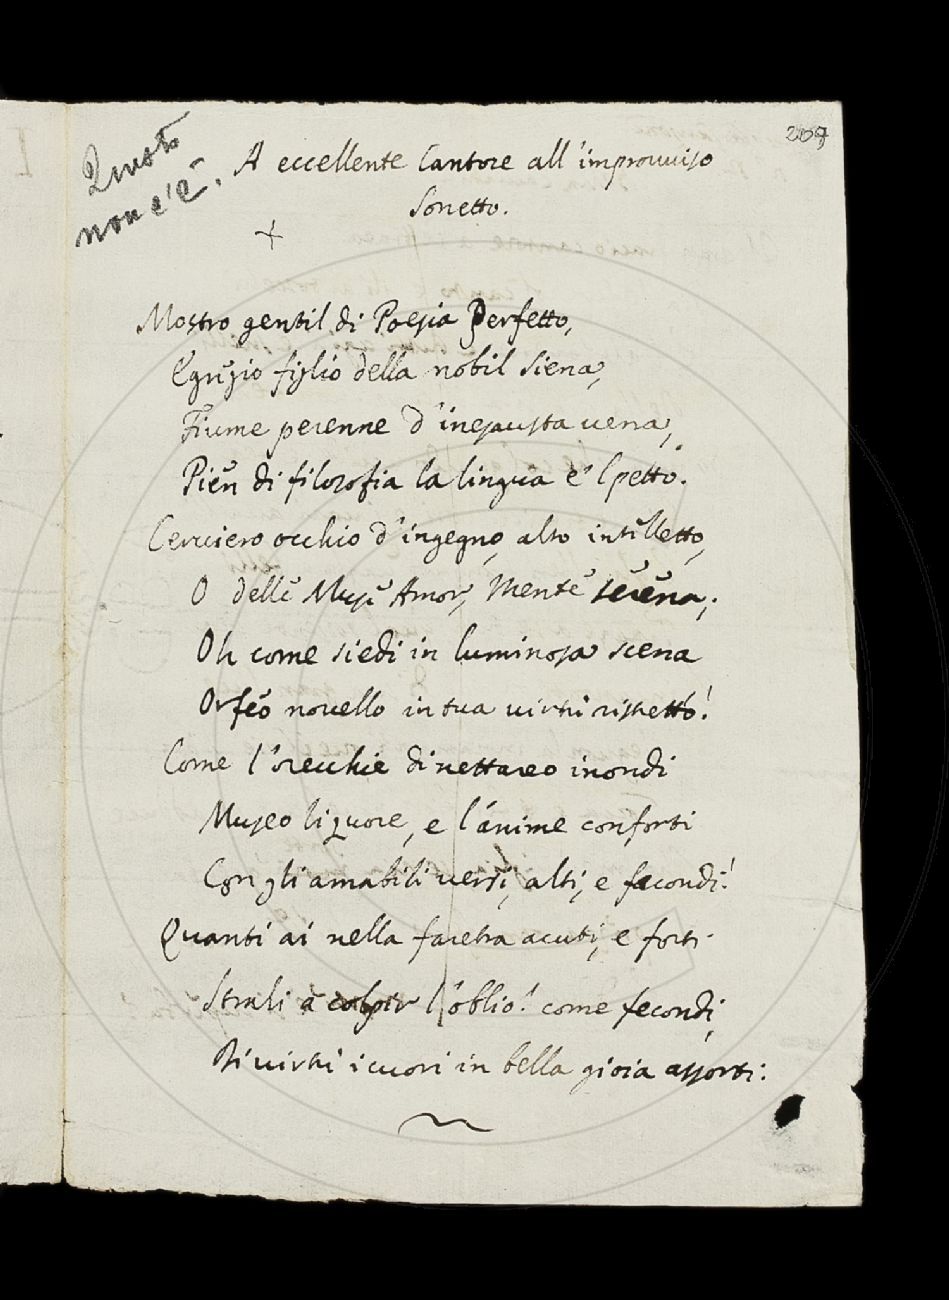 209
Questo
non c'è.
A eccellente Cantore all'improuuiso
Sonetto.
Mostro gentil di Poesia Perfetto,
Egregio figlio della nobil Siena,
Fiume perenne d'inesausta uena,
Pien di filosofia la lingua e'l petto.
Ceruiero occhio d'ingegno, alto intelletto,
O delle Muse Amor, Mente serena;
Oh come siedi in luminosa scena
Orfeo nouello in tua uirtù ristretto!
Come l'orecchie di nettareo inondi
Museo liquore, e l'anime conforti
Con gli amabili uersi, alti, e facondi!
Quanti ai nella faretra acuti, e forti
Strali a colpir l'oblio! come fecondi,
Di uirtù i cuori in bella gioia assorti: